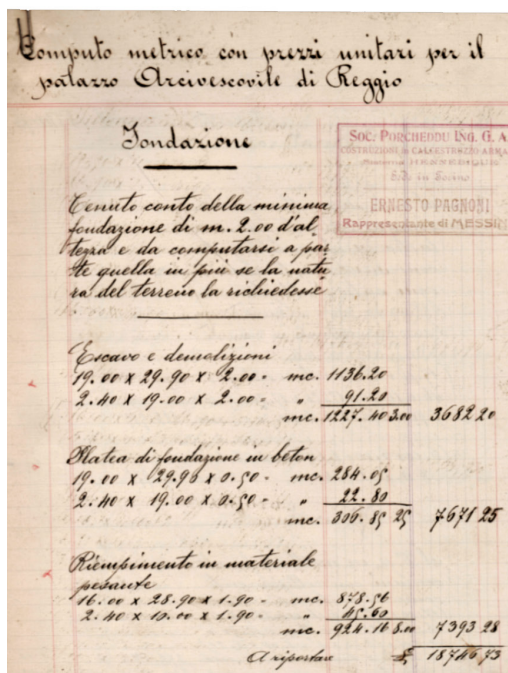 Computo metrico con prezzi unitari per il
palazzo Arcivescovile di Reggio
Fondazione
SOC: PORCHEDDU ING. G. A
COSTRUZIONI IN CALCESTRUZZO ARMA
Sede in Torino
ERNESTO PAGNONI
Rappresentante di MESSIN
Tenuto conto della minima
fondazione di m. 2.00 d'al
tezza e da computarsi a par
te quella in più se la natu
ra del terreno la richiedesse
Escavo e demolizioni
19.00 x 29.90 x 2.00 - mc. 1136.20
2.40 x 19.00 x 2.00 - " 91.20
mc. 1227.40 3.00 3682 20
Platea di fondazione in beton
19.00 x 29.90 x 0.50 - mc. 284.05
2.40 x 19.00 x 0.50 - " 22.80
mc. 306.85 25 7671 25
Riempimento in materiale
pesante
16.00 x 28.90 x 1.90 - mc. 878.56
2.40 x 10.00 x 1.90 - " 45.60
mc. 924.16 8.00 7393 28
A riportare £ 18746,73